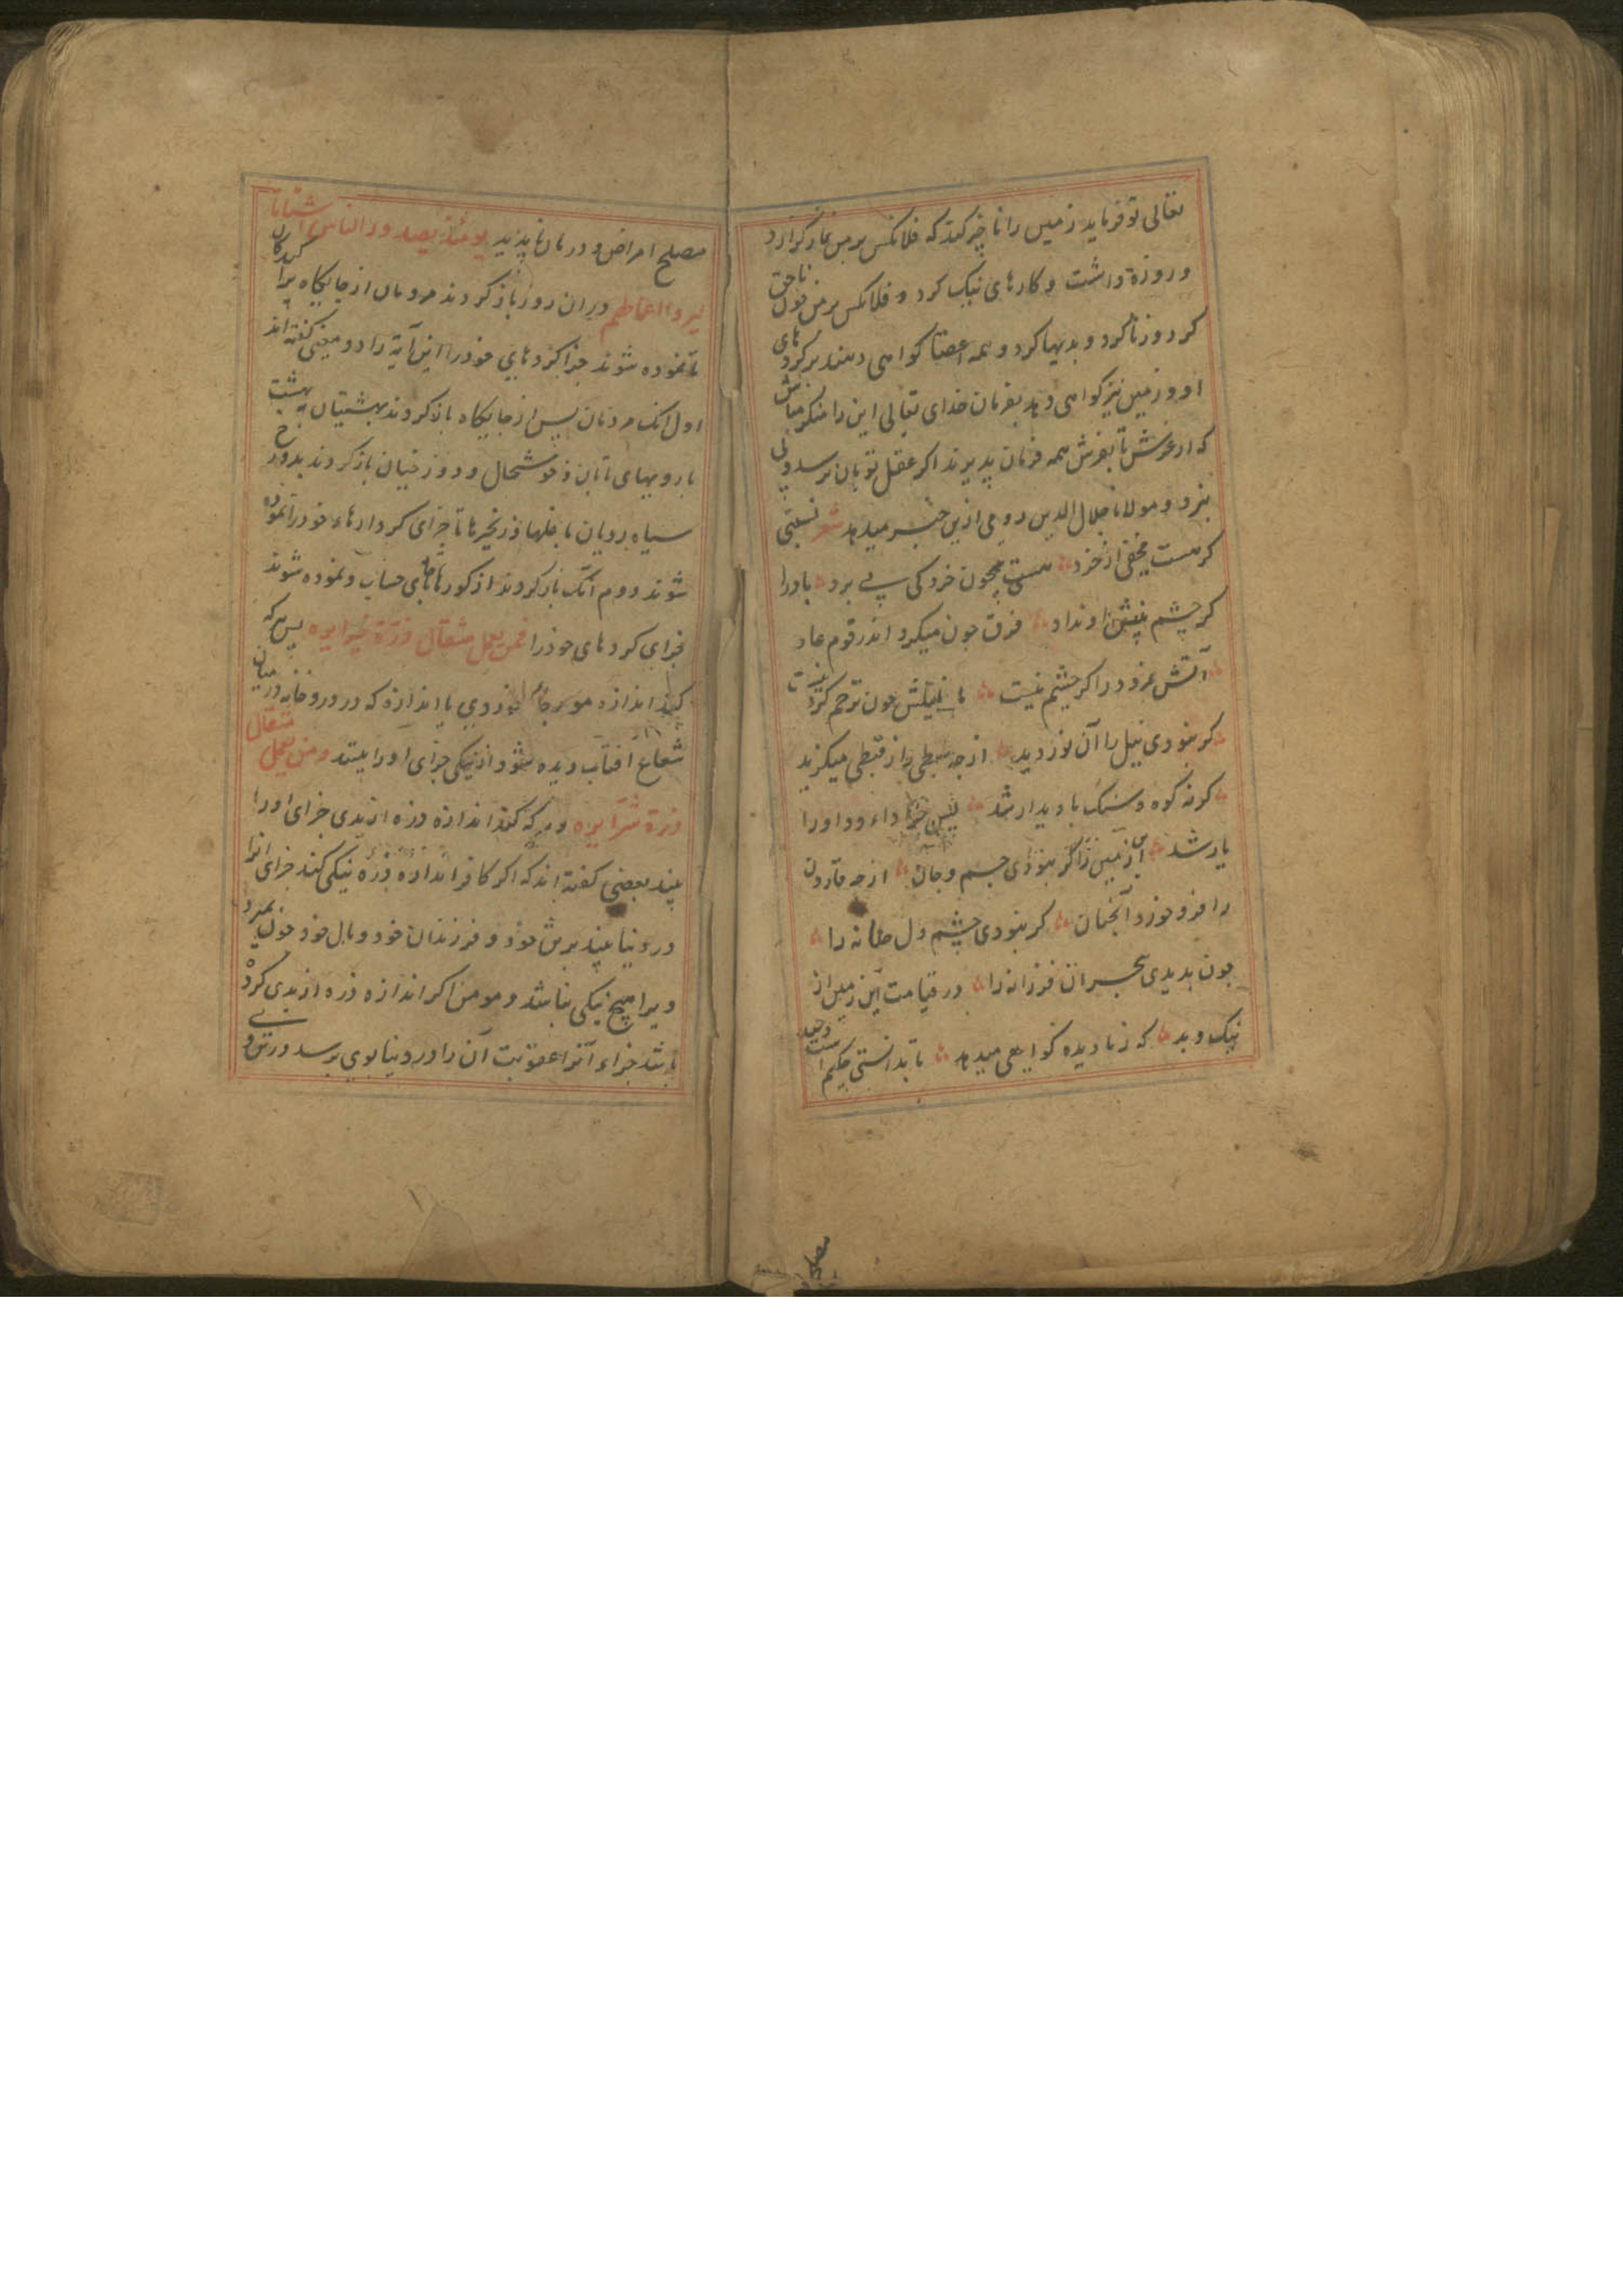 تعالی تو فرماید زمین را تا خبر کند که فلانکس بر من نماز گزارد
و روزه داشت و کارهای نیک کرد و فلانکس بر من خون ناحق
کرد و زنا کرد و بدیها کرد و همه اعضا کواهی دهند بر کرد های
او و زمین نیز کواهی دهد بفرمان خدای تعالی این را منکر مباش
که از عرش تا بفرش همه فرمان پذیرند اکر عقل تو بان نرسد ولی
نبرد و مولانا جلال الدین رومی ازین خبر میدهد شعر نسبتی
کر هست مخفی از خرد هست بیچون خرد کی پی برد باد را
کر چشم بینش او نداد فرق چون میکرد اندر قوم عاد
آتش نمرود را کر چشم نیست با خلیلش چون ترحم کرد نیست
کر نبودی نیل را آن نور دید از چه سبطی را ز قبطی میکزید
کر نه کوه و سنک با دیدار شد پس چرا داود را او
یار شد این زمین را کر نبودی چشم و جان از چه قارون
را فرو خورد آنچنان کر نبودی چشم دل حنانه را
چون بدیدی هجر آن فرزانه را در قیامت این زمین از
نیک و بد که ز نادیده کواهی میدهد تا بدانستی حکیم است وحید
مصلح
مصلح امراض و درمان ناپذید یومئذ یصدر الناس اشتاتا
لیروا اعمالهم دران روز باز کردند مردمان از جایکاه پراکندکان
تا نموده شوند جزا کردهای خود را این آیة را دو معنی کفته اند
اول آنک مردمان پس از جایکاه باز کردند بهشتیان بهشت
با رویهای تابان و خوشحال و دوزخیان باز کردند بدوزخ
سیاه رویان با غلها و زنجیرها تا جزای کردارهاء خود را نموده
شوند دوم آنک باز کردند از کورها بجای حساب و نموده شوند
جزای کردهای خود را فمن یعمل مثقال ذرة خیرا یره پس هر که
کند اندازه مورچه خوردی یا اندازه که در روز خانه در میان
شعاع آفتاب دیده شود از نیکی جزای او را بیند ومن یعمل مثقال
ذرة شرا یره و هر که کند اندازه ذره از بدی جزای او را
بیند بعضی کفته اند که اکر کافر اندازه ذره نیکی کند جزای آنرا
در دنیا بیند بر تن خود و فرزندان خود و مال خود چون بمیرد
ویرا هیچ نیکی نباشد و مومن اکر اندازه ذره از بدی کرده
باشد جزاء آنرا عقوبت آن را در دنیا بوی برسد در تن و